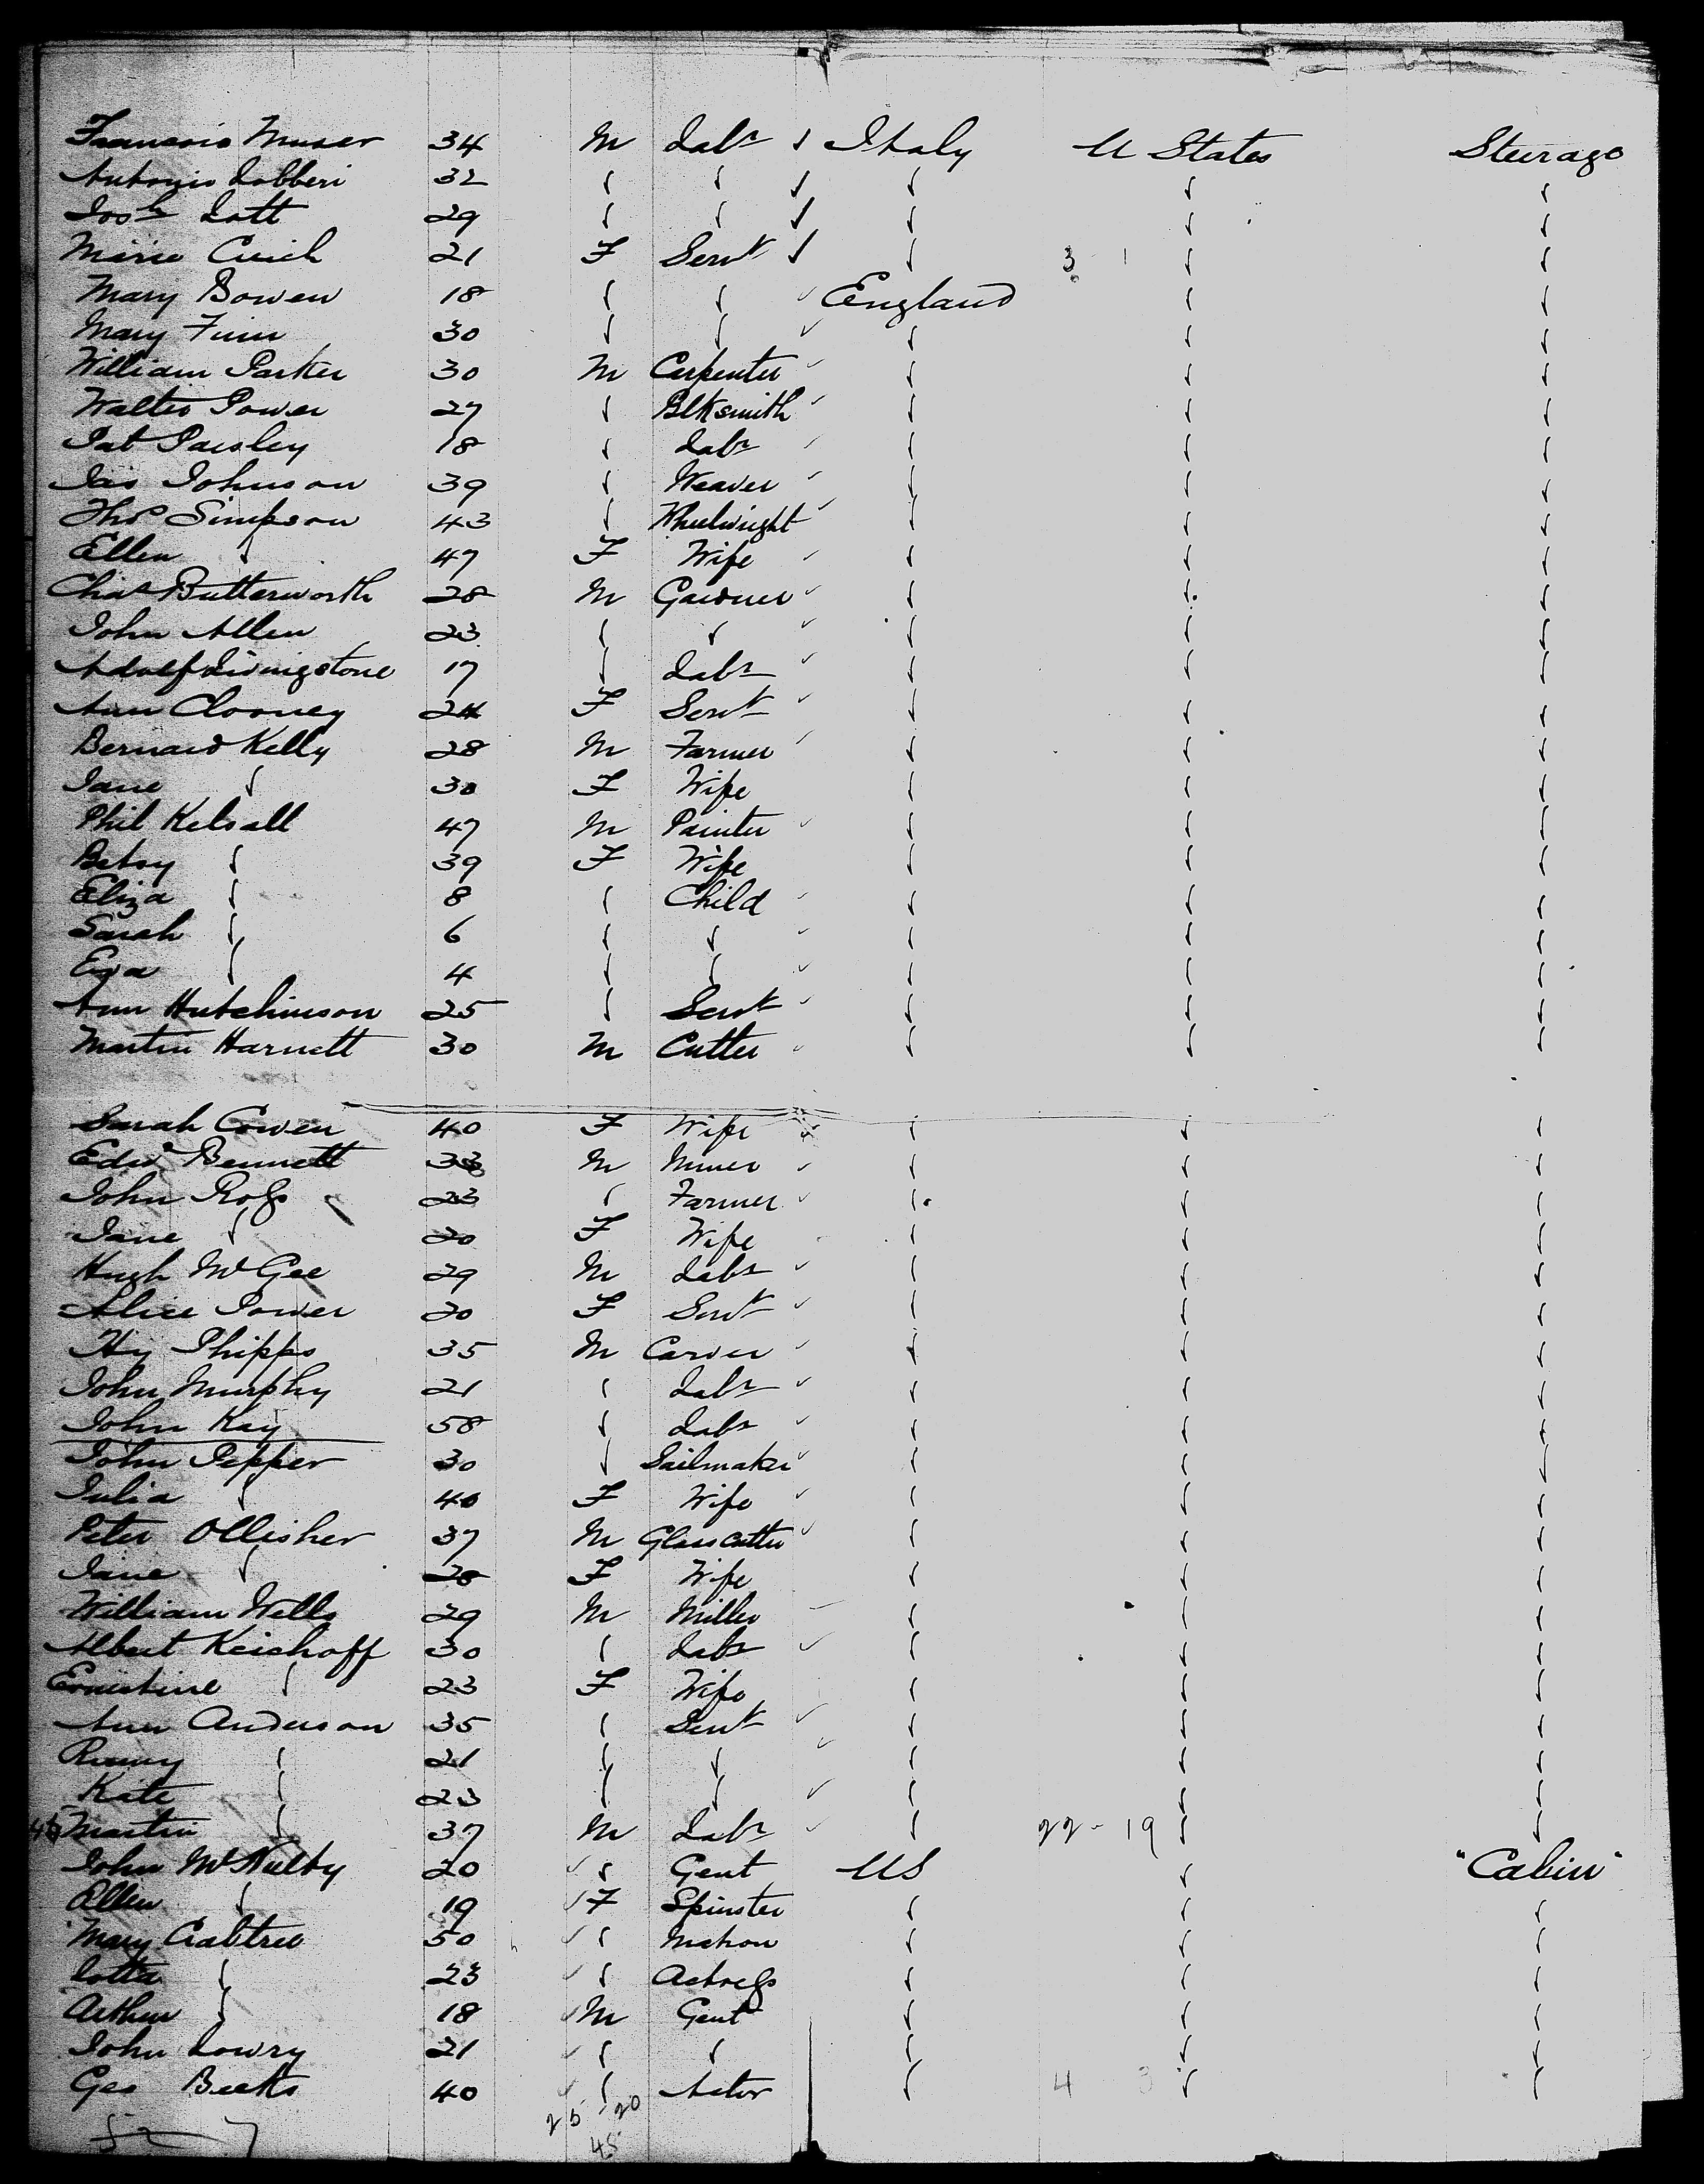 Francesco Muser 34 M Labr Italy U States Steerage
Antonio Lobberi 32
Josh Lott 29
Marie Cuich 21 F Servt 3 1
Mary Bowen 18 England
Mary Finn 30
William Parker 30 M Carpenter
Walter Power 27 Blksmith
Pat Paisley 18 Labr
Jas Johnson 39 Weaver
Thos Simpson 43 Wheelwright
Ellen 47 F Wife
Chas Butterworth 28 M Gardner
John Allen 23
Adolf Livingstone 17 Labr
Ann Clooney 24 F Servt
Bernard Kelly 28 M Farmer
Jane 30 F Wife
Phil Kelsall 47 M Painter
Betsy 39 F Wife
Eliza 8 Child
Sarah 6
Eva 4
Ann Hutchinson 25 Servt
Martin Harnett 30 M Cutter
Sarah Cowen 40 F Wife
Edwd Bennett 33 M Miner
John Ross 23 Farmer
Jane 20 F Wife
Hugh McGee 29 M Labr
Alice Power 20 F Servt
Hy Phipps 35 M Carver
John Murphy 21 Labr
John Kay 58 Labr
John Pepper 30 Sailmaker
Julia 40 F Wife
Peter Ollisher 37 M Glass cutter
Jane 28 F Wife
William Wells 29 M Miller
Albert Keichoff 30 Labr
Ernestine 23 F Wife
Ann Anderson 35 Servt
21
Kate 23
Martin 37 M Labr 22 - 19
John McNulty 20 Gent US "Cabin"
Ellen 19 F Spinster
Mary Crabtree 50 Matron
Lotta 23 Actress
Arthur 18 M Gent
John Lowry 21
Geo Beeks 40 Actor 4 3
52 7 25 - 20
45